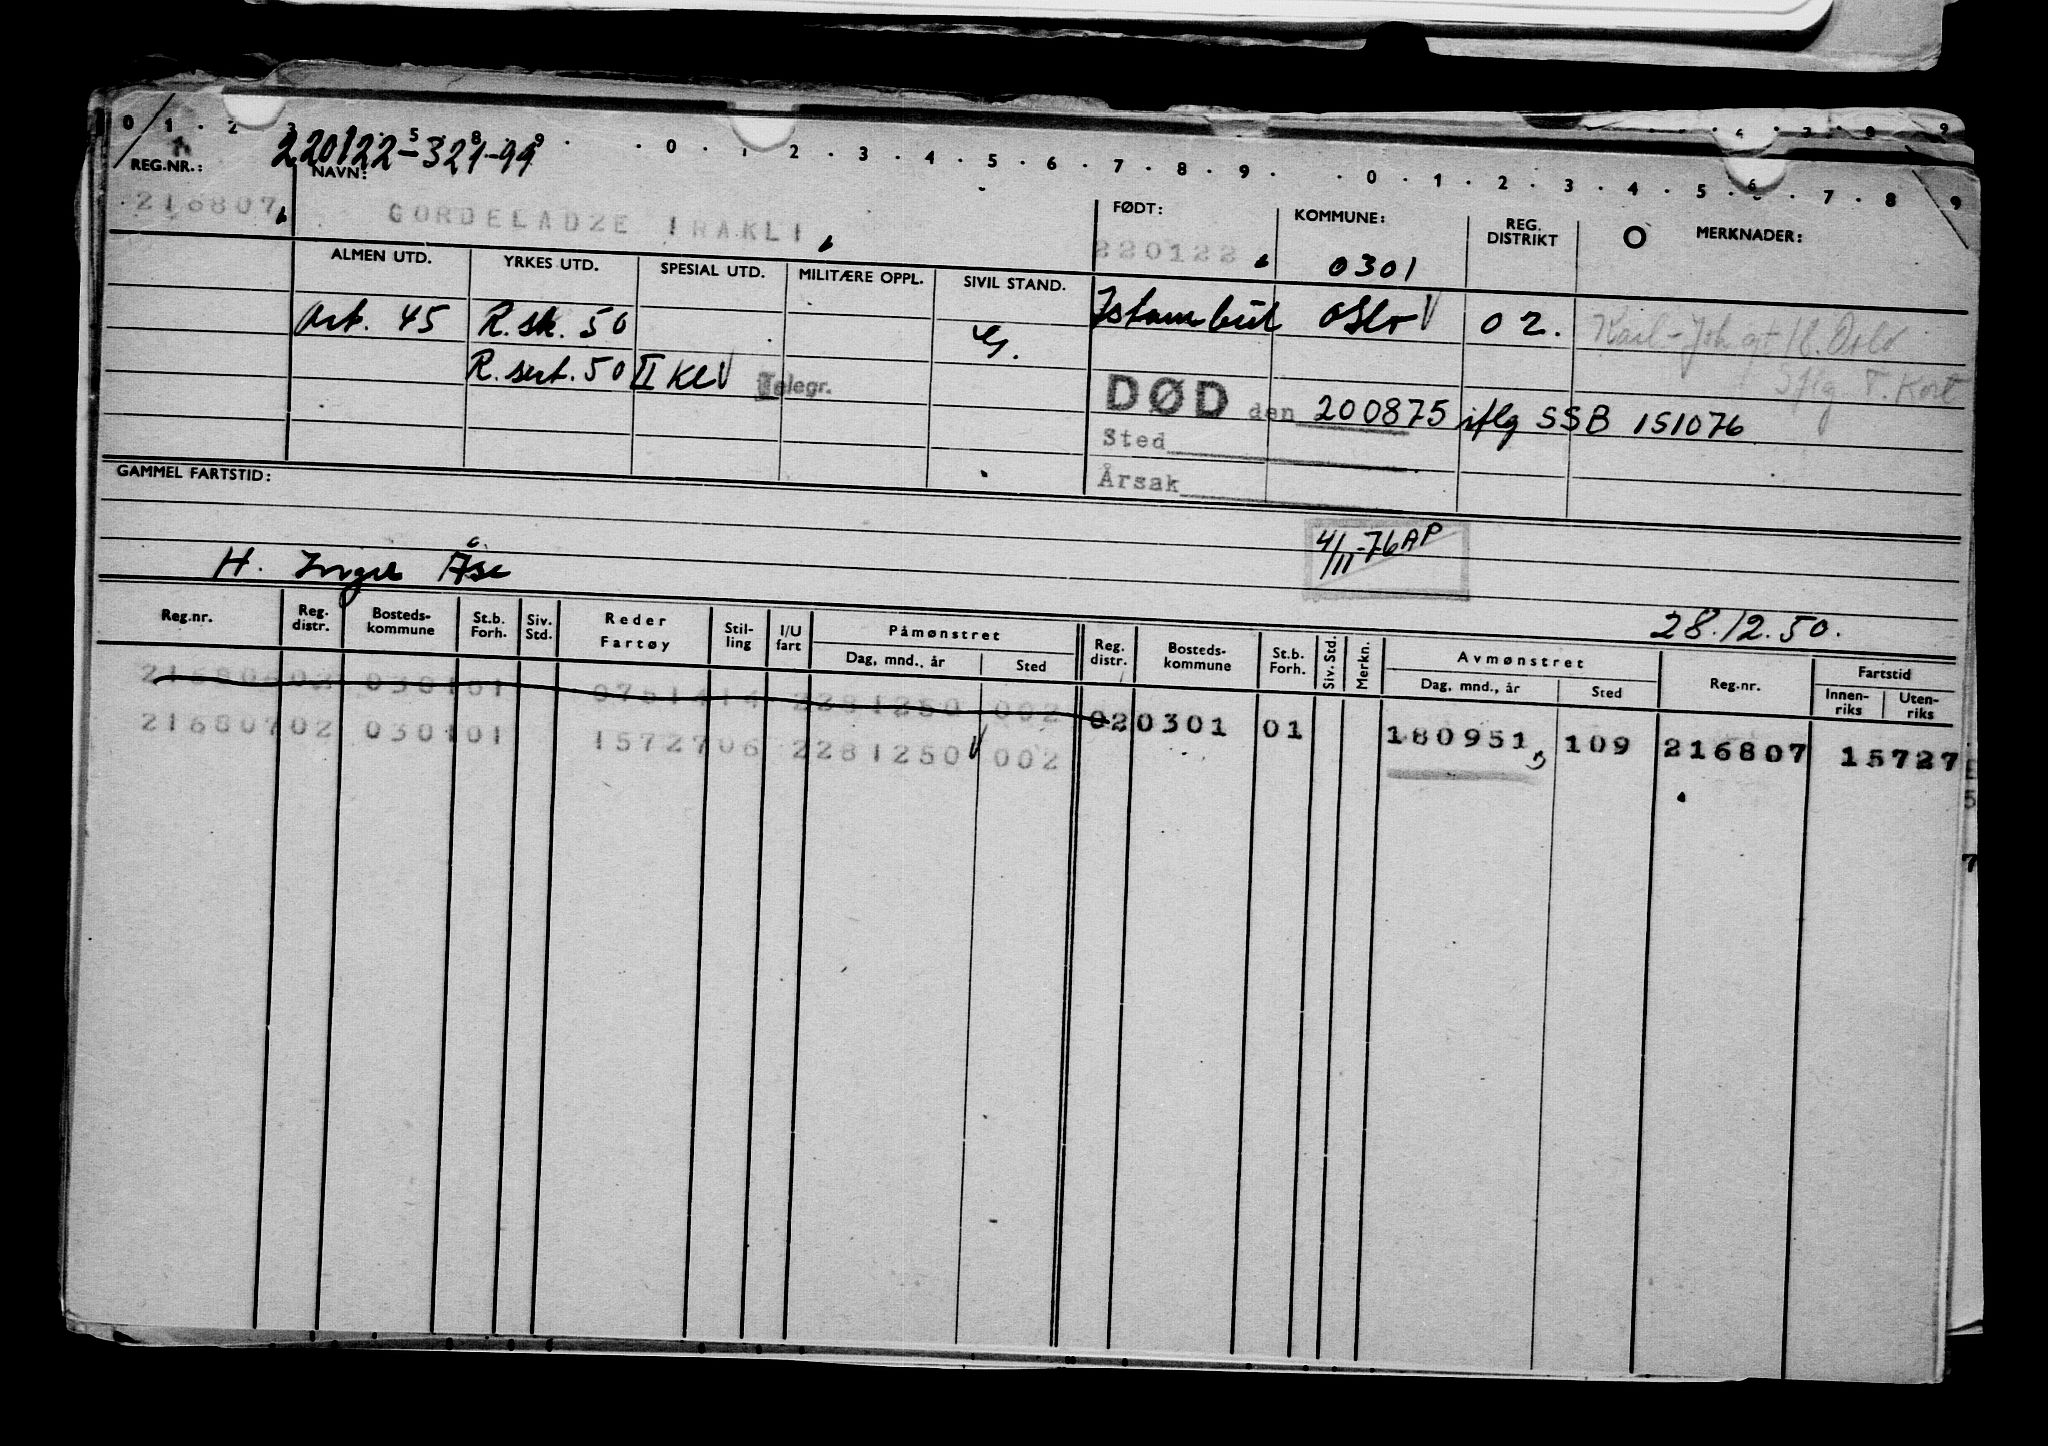 0 1 2 3 5 8 9 0 1 2 3 4 5 6 7 8 9 0 1 2 3 4 5 6 7 8 9
220122-32199
REG.NR.: NAVN: FØDT: KOMMUNE: REG. DISTRIKT O MERKNADER:
216807 GORDELADZE IRAKLI 220122 0301
ALMEN UTD. YRKES UTD. SPESIAL UTD. MILITÆRE OPPL. SIVIL STAND.
Art. 45 R.sk. 50 G. Istambul Oslo V 02. Karl-Joh gt 16. Oslo
R.sert. 50 II Kl V Telegr. Sflg T. Kort
DØD den 200875 iflg SSB 151076
Sted
Årsak
GAMMEL FARTSTID:
4/11-76 AP
H. Inger Åse
28.12.50.
Reg.nr. Reg. distr. Bosteds-kommune St.b. Forh. Siv. Std. Reder Fartøy Stil-ling I/U fart Påmønstret Reg. distr. Bosteds-kommune St.b. Forh. Siv. Std. Merkn. Avmønstret Reg.nr. Fartstid
Dag, mnd., år Sted Dag, mnd., år Sted Innen-riks Uten-riks
21680602 030101 0781414 2281250 002
21680702 030101 1572706 2281250 V 002 02 0301 01 180951 109 216807 15727